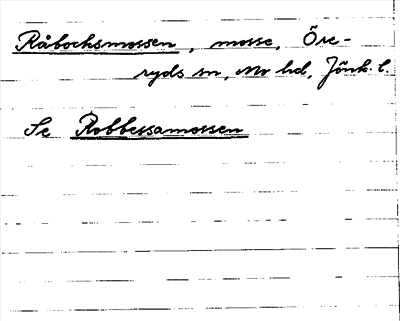 Råbochsmossen, mosse, Öre-
ryds sn, Mo hd, Jönk. l.
Se Robbessamossen